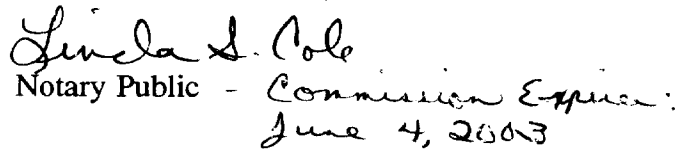 Linda S. Cole
Notary Public - Commission Expires:
June 4, 2003